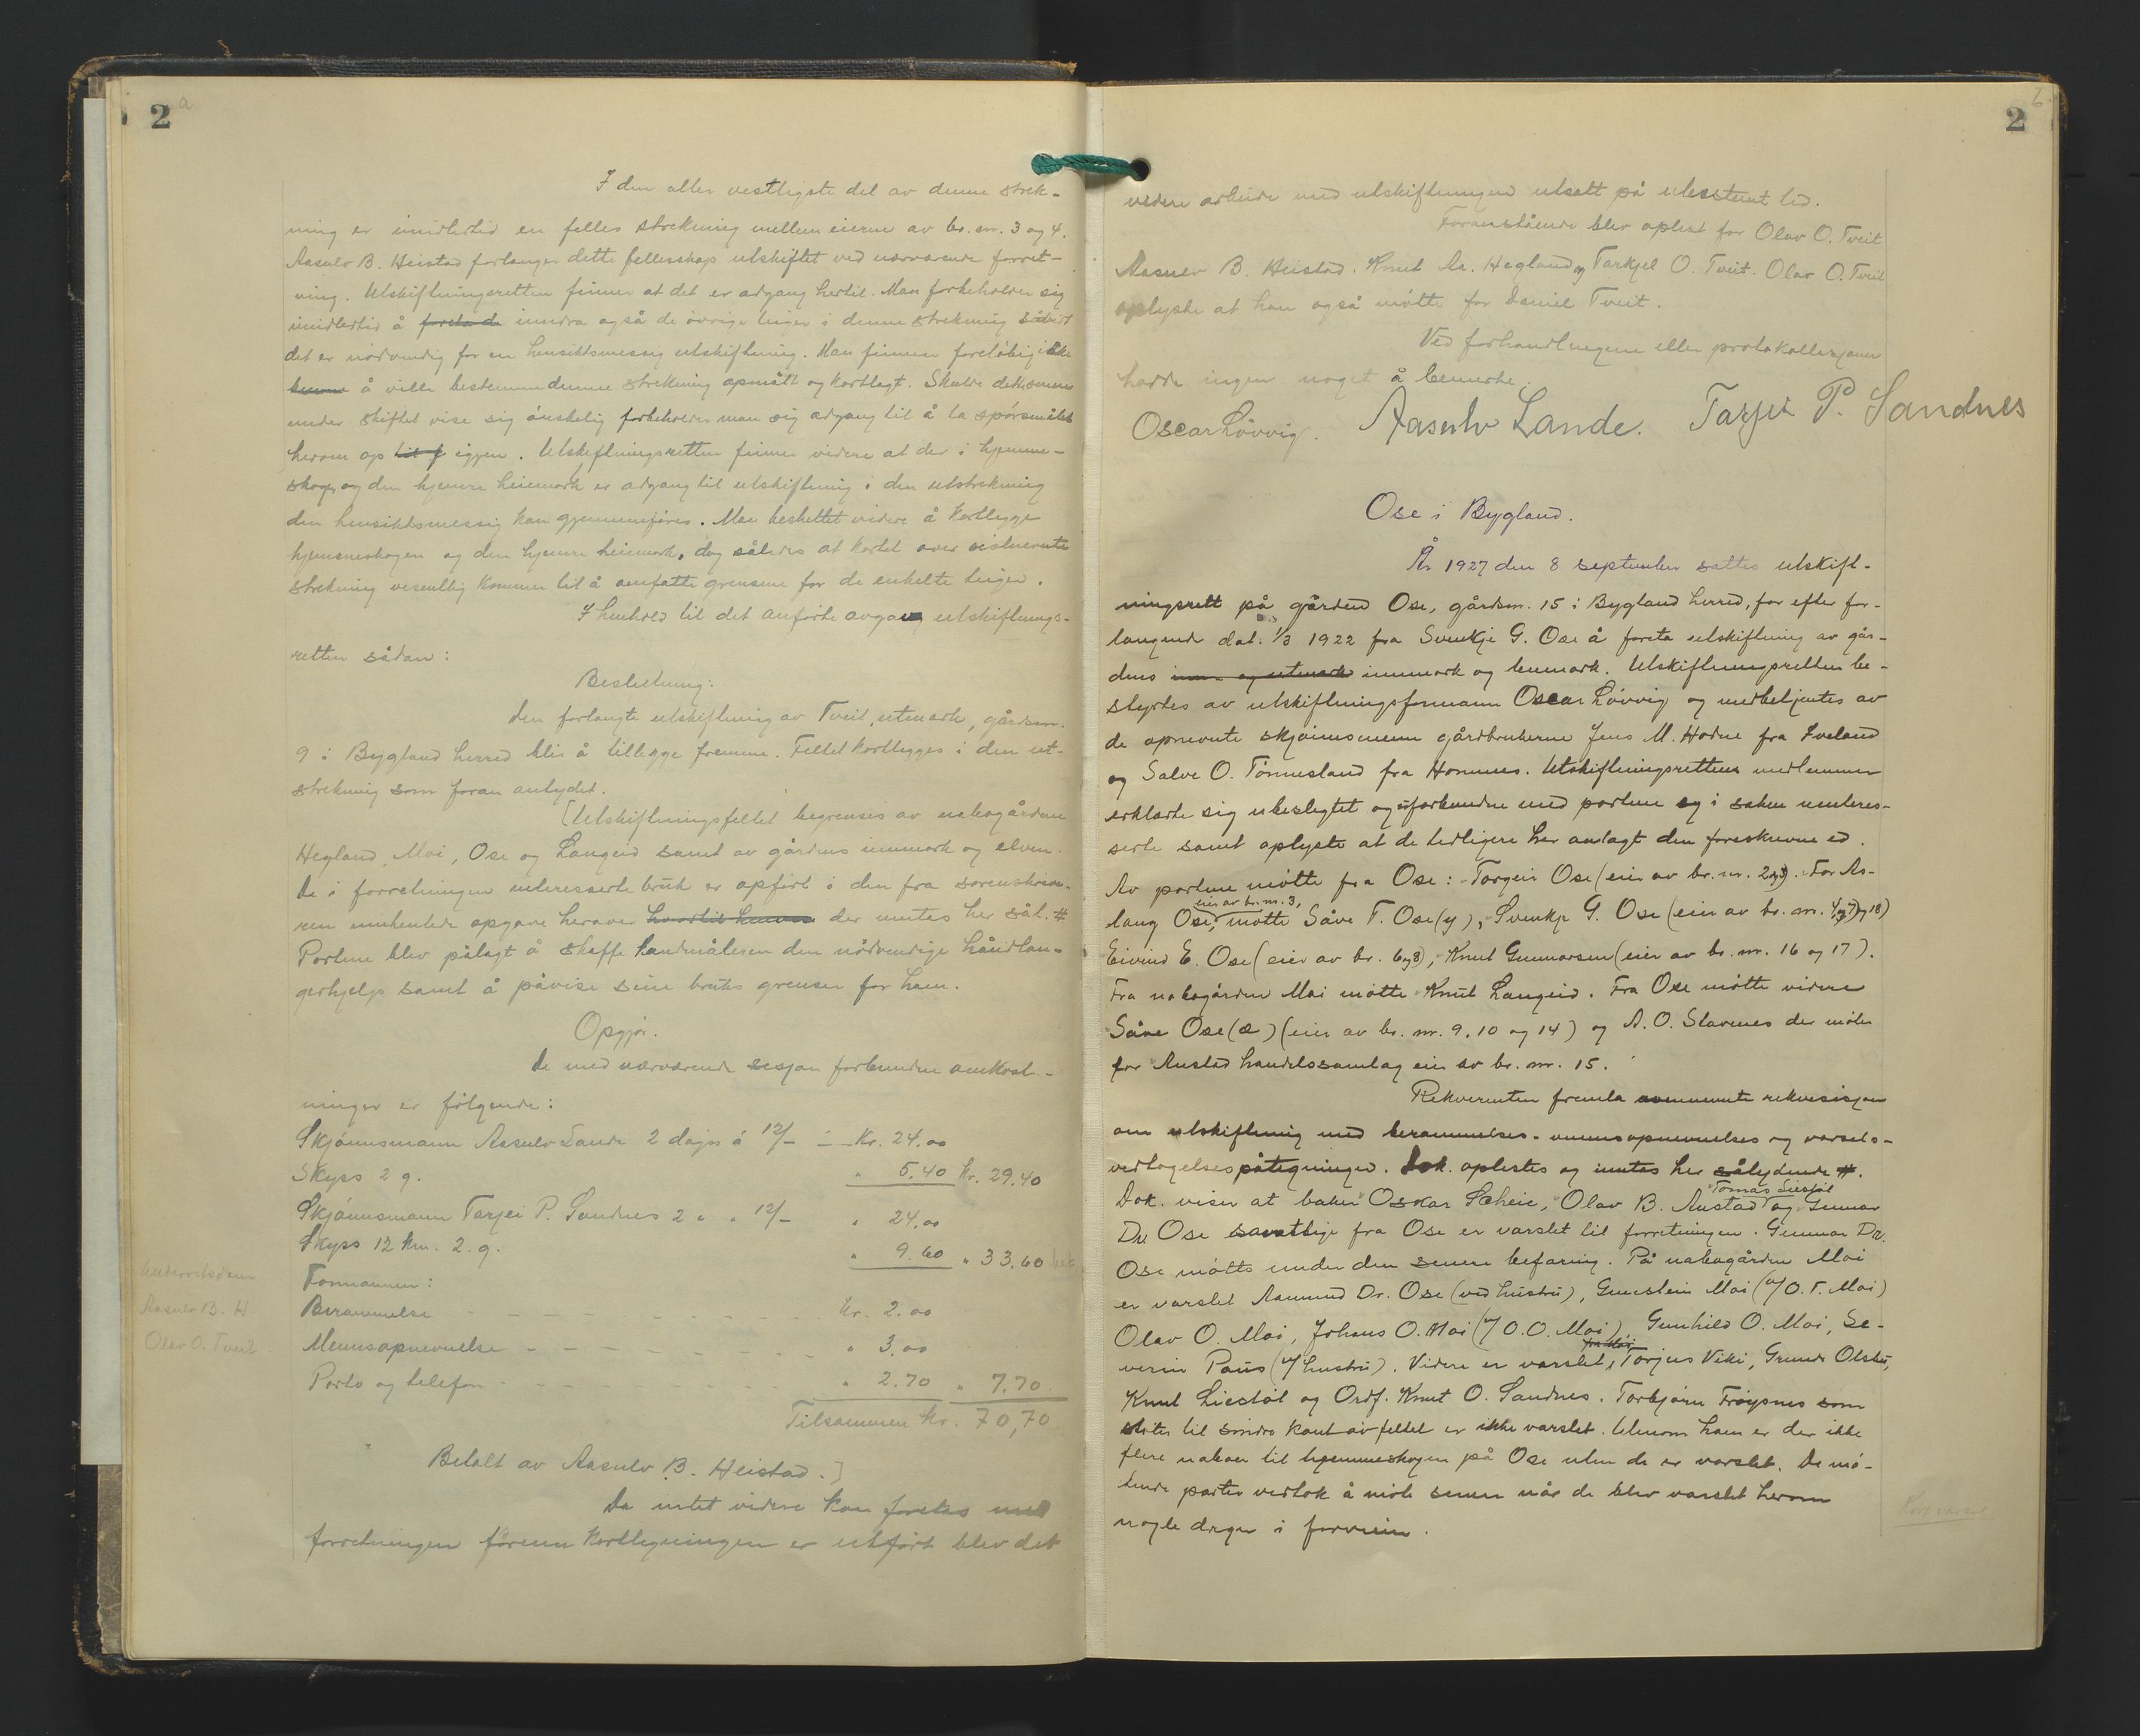 2 a
I den aller vestligste del av denne strek-
ning er imidlertid en felles strekning mellem eierne av br. nr. 3 og 4.
Aasulv B. Heistad forlanger dette fellesskap utskiftet ved nærværende forret-
ning. Utskiftningsretten finner at det er adgang hertil. Man forbeholder sig
imidlertid å foreta de inndra også de övrige teiger i denne strekning såvidt
det er nödvendig for en hensiktsmessig utskiftning. Man finner forelöbig ikke
å ville bestemme denne strekning opmålt og kartlagt. Skulde det senere
under skiftet vise sig önskelig forbeholder man sig adgang til å ta spörsmålet
herom op til f igjen. Utskiftningsretten finner videre at der i hjemme-
skogen og den hjemre heiemark er adgang til utskiftning i den utstrekning
den hensiktsmessig kan gjennemföres. Man besluttet videre å kartlegge
hjemmeskogen og den hjemre heiemark, dog således at kartet over sistnevnte
strekning vesentlig kommer til å omfatte grensene for de enkelte teiger.
I henhold til det anförte avgav utskiftnings-
retten sådan:
Beslutning:
Den forlangte utskiftning av Tveit, utmark, gårdsnr.
9 i Bygland herred blir å tillegge fremme. Feltet kartlegges i den ut-
strekning som foran antydet.
[Utskiftningsfeltet begrenses av nabogårdene
Hegland, Moi, Ose og Langeid samt av gårdens innmark og elven.
De i forretningen interesserte bruk er opfört i den fra sorenskrive-
ren innhentede opgave herover der inntas her sål. #
Partene blev pålagt å skaffe landmåleren den nödvendige håndlan-
gerhjelp samt å påvise sine bruks grenser for ham.
Opgjör.
De med nærværende sesjon forbundne omkost-
ninger er fölgende:
Skjönnsmann Aasulv Lande 2 dager á 12/- = Kr. 24.00
Skyss 2 g. " 5.40 Kr. 29.40
Skjönnsmann Tarjei P. Sandnes 2 " " 12/- " 24.00
Skyss 12 km. 2. g. " 9.60 " 33.60
Formannen:
Aasulv B. H.
Berammelse - - - Kr. 2.00
Olav O. Tveit
Mennsopnevnelse - - - " 3.00
Porto og telefon - - - " 2.70 " 7.70
Tilsammen kr. 70,70
Betalt av Aasulv B. Heistad.]
Da intet videre kan foretas med
forretningen förenn kartlegningen er utfört blev det
2 b
videre arbeide med utskiftningen utsatt på ubestemt tid.
Foranstående blev oplest for Olav O. Tveit
Aasulv B. Heistad. Knut Aa. Hegland og Tarkjel O. Tveit. Olav O. Tveit
oplyste at han også mötte for Daniel Tveit.
Ved forhandlingene eller protokollasjonen
hadde ingen noget å bemerke.
Oscar Lövvig. Aasulv Lande. Tarjei P. Sandnes
Ose i Bygland.
År 1927 den 8 september sattes utskift-
ningsrett på gården Ose, gårdsnr. 15 i Bygland herred, for efter for-
langende dat. 1/3 1922 fra Svenkje G. Ose å foreta utskiftning av går-
dens inn- og utmark innmark og heimark. Utskiftningsretten be-
styrtes av utskiftningsformann Oscar Lövvig og medbetjentes av
de opnevnte skjönnsmenn gårdbrukerne Jens M. Hodne fra Iveland
og Salve O. Tönnesland fra Hornnes. Utskiftningsrettens medlemmer
erklærte sig ubeslegtet og uforbundne med partene og i saken uinteres-
serte samt oplyste at de tidligere har avlagt den foreskrevne ed.
Av partene mötte fra Ose: Torgeir Ose (eier av br. nr. 2 og 3). For As-
eier av br. nr. 3,
lang Ose, mötte Såve T. Ose (y), Svenkje G. Ose (eier av br. nr. 4, 7 og 18)
Eivind E. Ose (eier av br. 6 og 8), Knut Gunnarsen (eier av br. nr. 16 og 17).
Fra nabogården Moi mötte Knut Langeid. Fra Ose mötte videre
Såve Ose (e) (eier av br. nr. 9, 10 og 14) og A. O. Stavenes der möter
for Austad handelssamlag eier av br. nr. 15.
Rekventen fremla ovennevnte rekvisisjon
om utskiftning med berammelses- mennsopnevnelses og varsels-
vedtagelsespåtegninger. Dok. oplestes og inntas her sålydende #.
Tomas Liestöl
Dok. viser at baker Oskar Scheie, Olav B. Austad og Gunnar
Dr. Ose samtlige fra Ose er varslet til forretningen. Gunnar Dr.
Ose mötte under den senere befaring. På nabogården Moi
er varslet Aamund Dr. Ose (ved hustru), Gunstein Moi (v/ O. T. Moi)
Olav O. Moi, Johans O. Moi (v/ O. O. Moi), Gunhild O. Moi, Se-
fra Moi
verin Paus (v/ hustru). Videre er varslet, Torjus Viki, Grunde Olstu,
Knut Liestöl og Ordf. Knut O. Sandnes. Torbjörn Fröysnes som
stöter til söndre kant av feltet er ikke varslet. Utenom ham er der ikke
flere naboer til hjemmeskogen på Ose uten de er varslet. De mö-
tende parter vedtok å möte senere når de blev varslet herom
nogle dager i forveien.